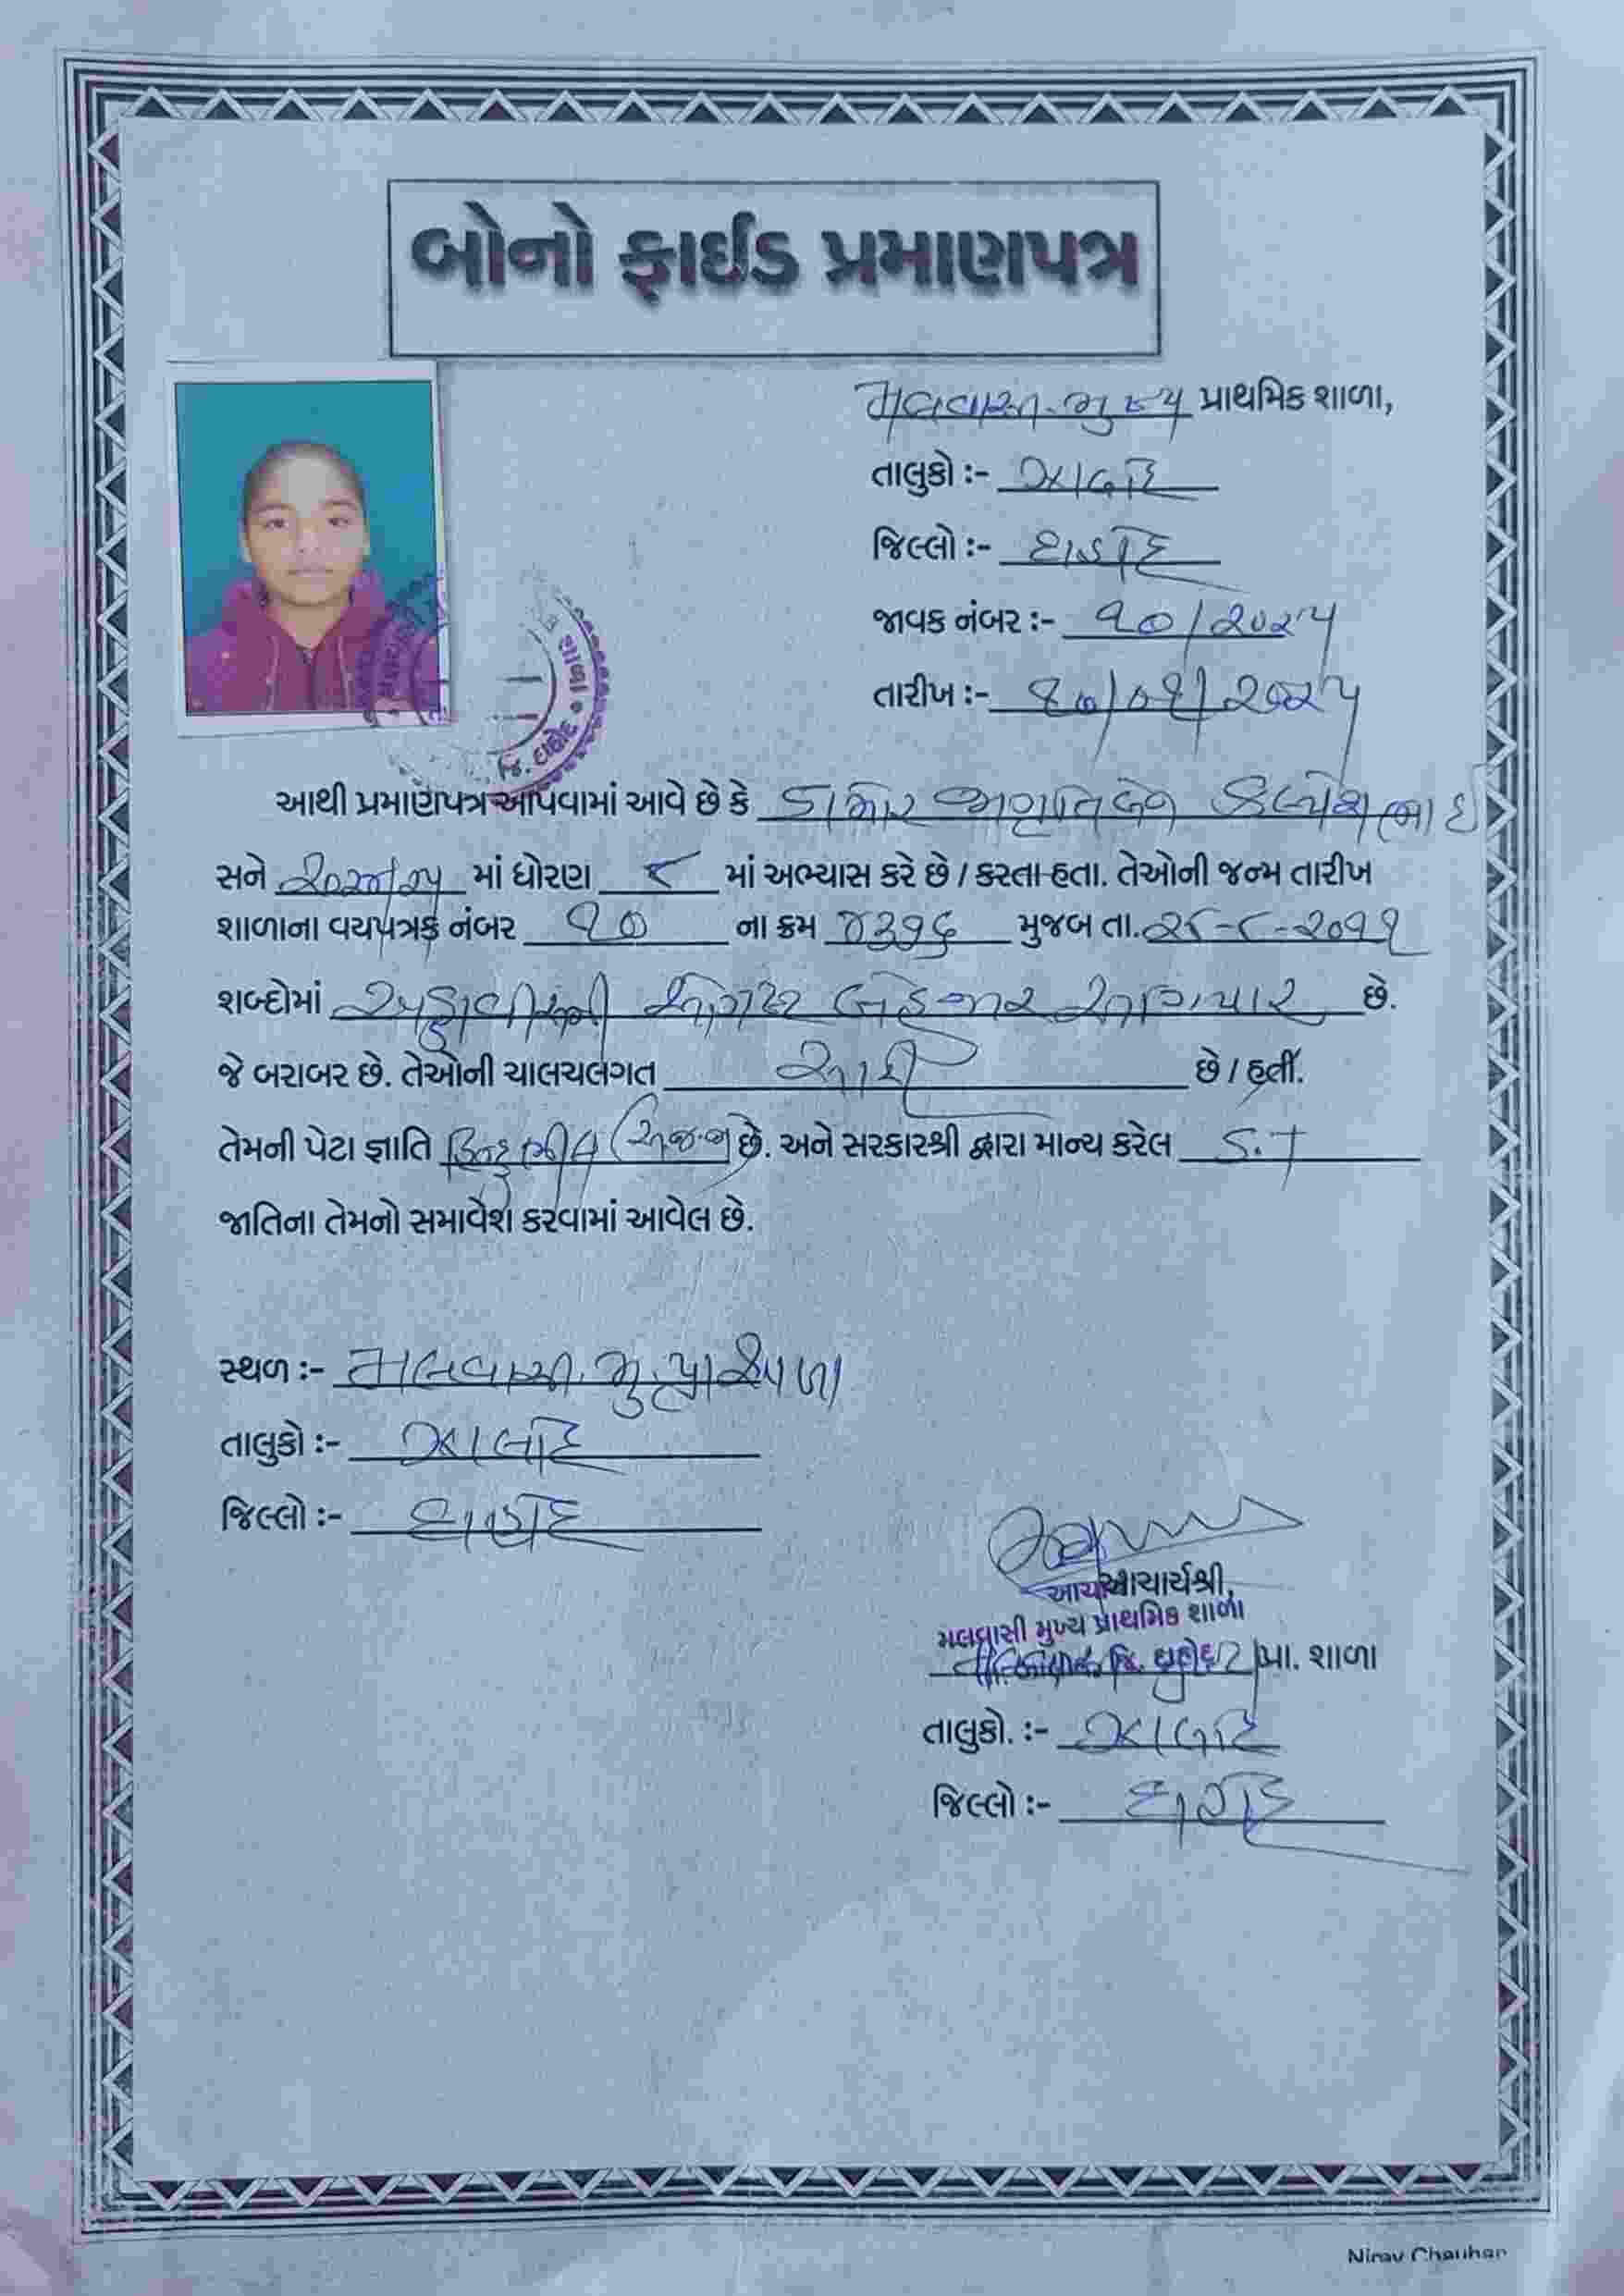 બોનો ફાઈડ પ્રમાણપત્ર
મલવાસી મુખ્ય પ્રાથમિક શાળા,
તાલુકો :- ઝાલોદ
જિલ્લો :- દાહોદ
જાવક નંબર :- ૧૦/૨૦૨૫
તારીખ :- ૧૦/૦૧/૨૦૨૫
શાળા
જિ. દાહોદ
આથી પ્રમાણપત્ર આપવામાં આવે છે કે ડામોર જાગૃતિબેન કલ્પેશભાઈ
સને ૨૦૨૪/૨૫ માં ધોરણ ૮ માં અભ્યાસ કરે છે / કરતા હતા. તેઓની જન્મ તારીખ
શાળાના વયપત્રક નંબર ૧૦ ના ક્રમ ૪૩૧૬ મુજબ તા. ૨૮-૮-૨૦૧૧
શબ્દોમાં અઠ્ઠાવીસમી ઓગષ્ટ બેહજાર અગિયાર છે.
જે બરાબર છે. તેઓની ચાલચલગત સારી છે / હતી.
તેમની પેટા જ્ઞાતિ હિન્દુ ભીલ (અ.જ.જા) છે. અને સરકારશ્રી દ્વારા માન્ય કરેલ S.T
જાતિના તેમનો સમાવેશ કરવામાં આવેલ છે.
સ્થળ :- મલવાસી મુ. પ્રા શાળા
તાલુકો :- ઝાલોદ
જિલ્લો :- દાહોદ
આચાર્યશ્રી,
મલવાસી મુખ્ય પ્રાથમિક શાળા
જિ. દાહોદ પ્રા. શાળા
તાલુકો. :- ઝાલોદ
જિલ્લો :- દાહોદ
Nirav Chauhan